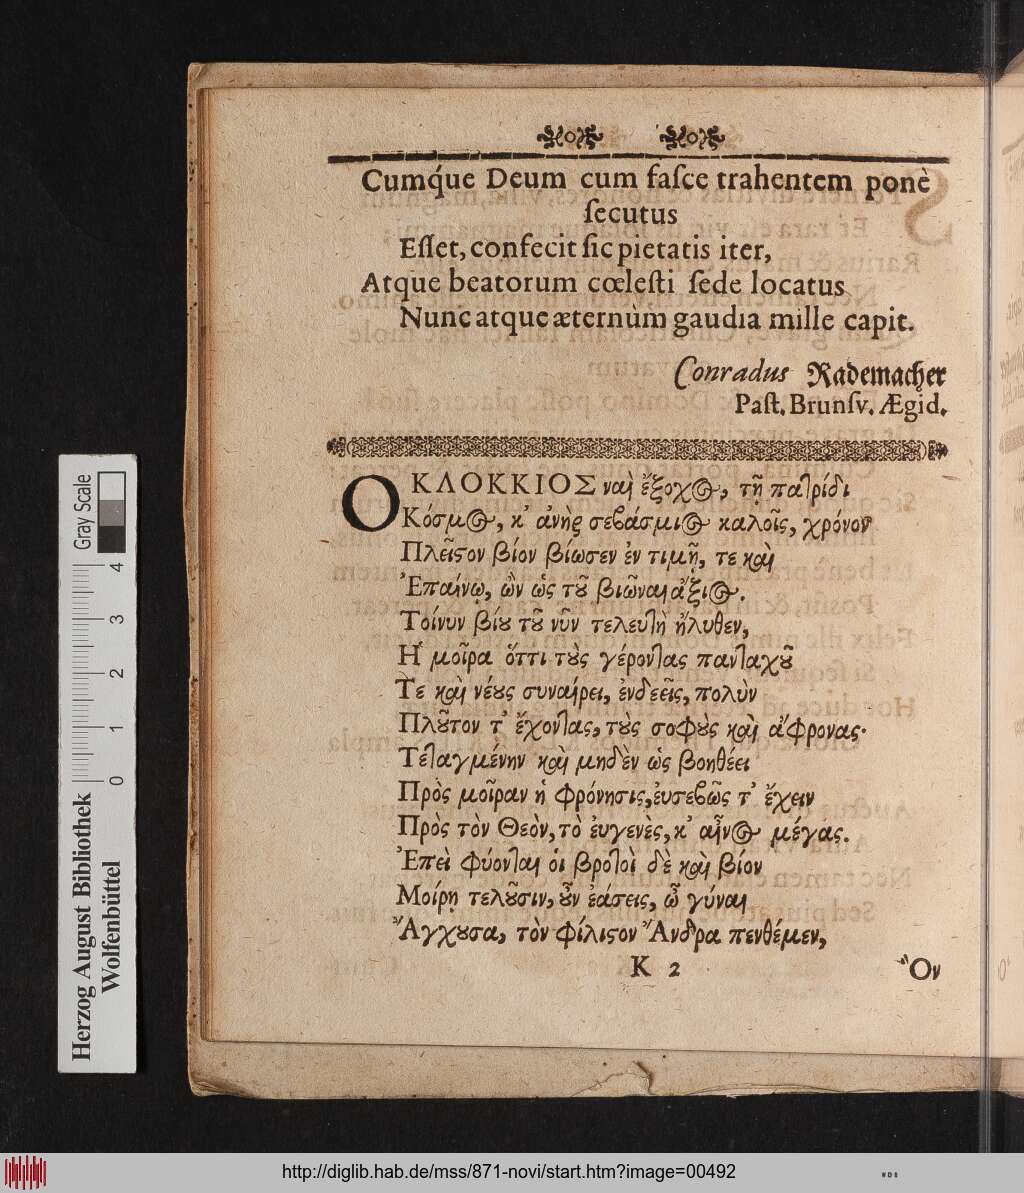 Cumq́ue Deum cum faſce trahentem ponè
ſecutus
Eſſet, confecit ſic pietatis iter,
Atque beatorum cœleſti ſede locatus
Nunc atque æternùm gaudia mille capit.
Conradus Rademacher
Paſt. Brunſv. Ægid.
Ο ΚΛΟΚΚΙΟΣ ναὶ ἔξοχος, τῇ πατρίδι
Κόσμος, κ᾽ ἀνὴρ σεβάσμιος καλοῖς, χρόνον
Πλεῖϛον βίον βίωσεν ἐν τιμῇ, τε καὶ
Ἐπαίνῳ, ὢν ὡς τȣ͂ βιῶναι ἄξιος.
Τοίνυν βίȣ τȣ͂ νῦν τελευτὴ ἤλυθεν,
Η μοῖρα ὅττι τȣ̀ς γέροντας πανταχȣ͂
Τε καὶ νέȣς συναίρει, ἐνδεεῖς, πολὺν
Πλȣ͂τον τ᾽ ἔχοντας, τȣ̀ς σοφȣ̀ς καὶ ἄφρονας·
Τεταγμένην καὶ μηδὲν ὡς βοηθέει
Πρὸς μοῖραν ἡ φρόνησις, ἐυσεβῶς τ᾽ ἔχειν
Πρὸς τὸν Θεὸν, τὸ ἐυγενὲς, κ᾽ αἶνος μέγας.
Ἐπεὶ φύονται οἱ βροτοὶ δὲ καὶ βίον
Μοίρῃ τελȣ͂σιν, ȣ͂ν ἐάσεις, ὦ γύναι
Ἄγχȣσα, τὸν φίλιϛον Ἄνδρα πενθέμεν,
K 2
Ὃν
Gray Scale
4
3
2
1
0
Herzog August Bibliothek
Wolfenbüttel
http://diglib.hab.de/mss/871-novi/start.htm?image=00492